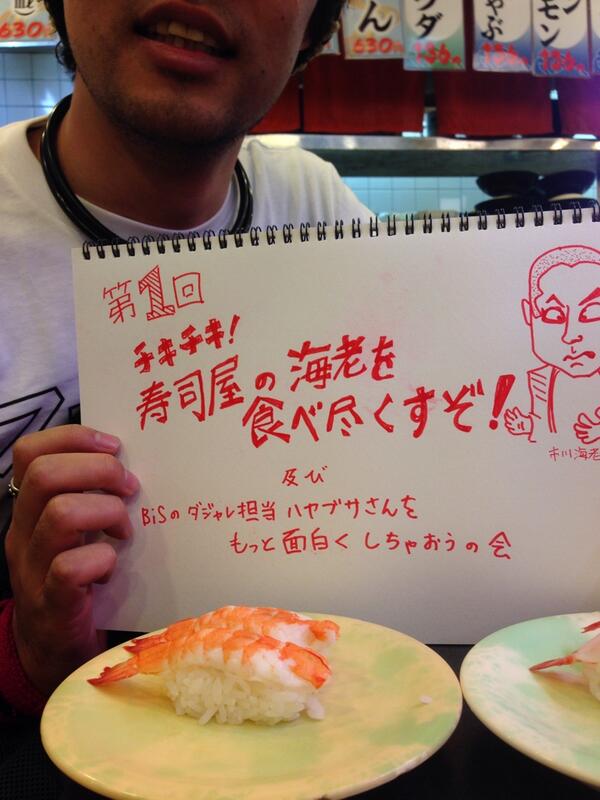 630円
ん
630円
ワダ
136円
ゃぶ
136円
モン
136円
第1回
チキチキ!
寿司屋の海老を
食べ尽くすぞ!
市川海老
及び
BiSのダジャレ担当ハヤブサさんを
もっと面白くしちゃおうの会